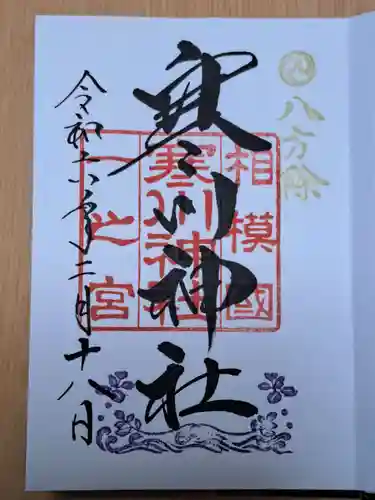 八方除
相模國
寒川神社
一之宮
寒川神社
令和六年二月十八日